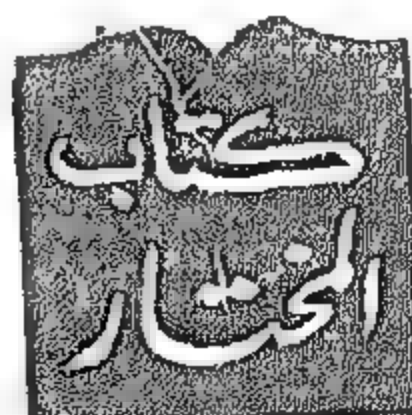 كتاب
المختار